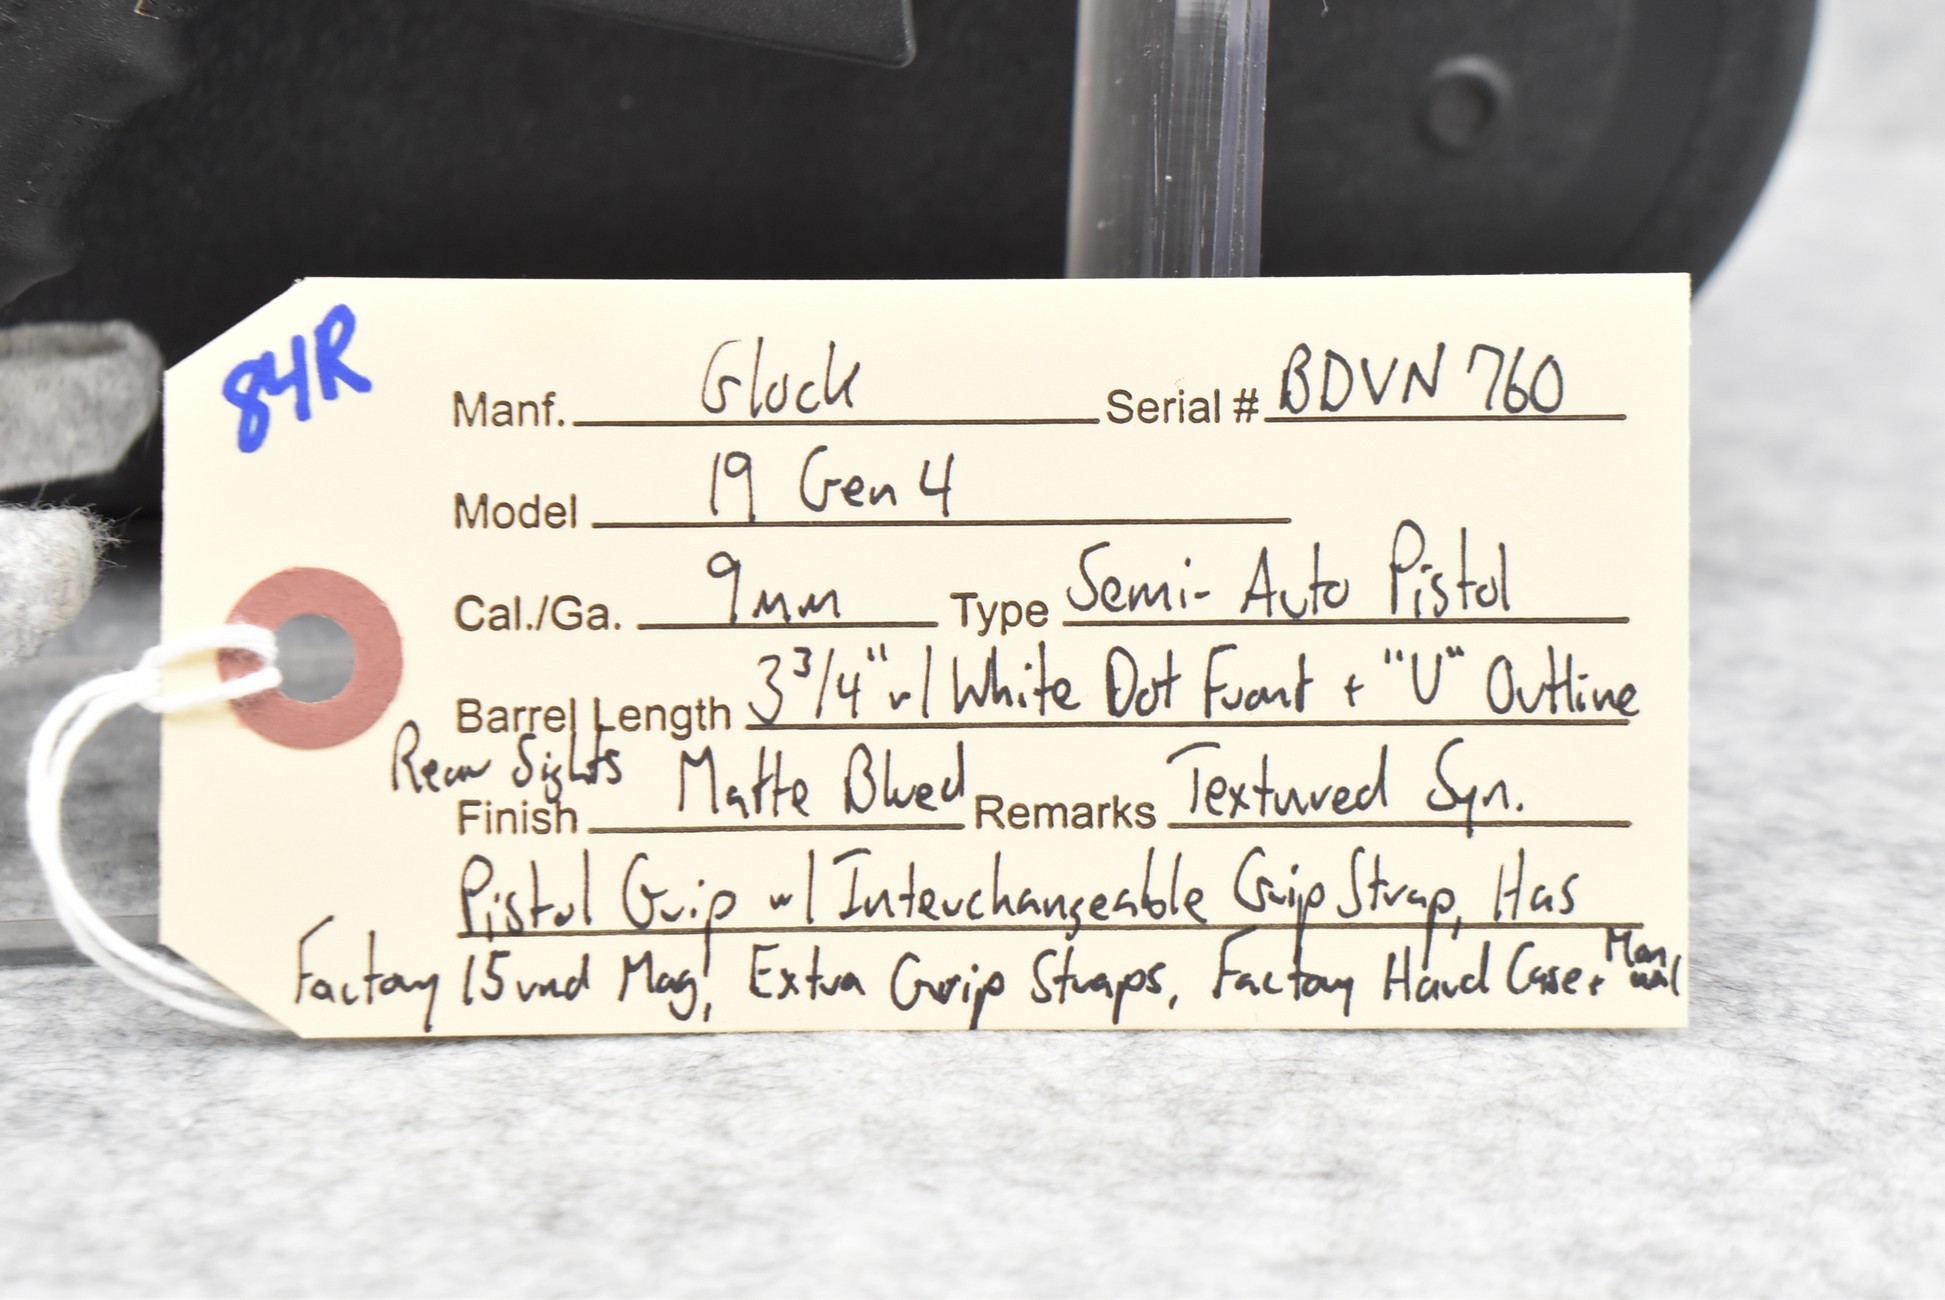 84R
Manf. Glock Serial # BDVN 760
Model 19 Gen 4
Cal./Ga. 9mm Type Semi-Auto Pistol
Barrel Length 3 3/4" w/ White Dot Front + "U" Outline
Rear Sights
Finish Matte Blued Remarks Textured Syn.
Pistol Grip w/ Interchangeable Grip Strap, Has
Factory 15rnd Mag, Extra Grip Straps, Factory Hard Case + Manual